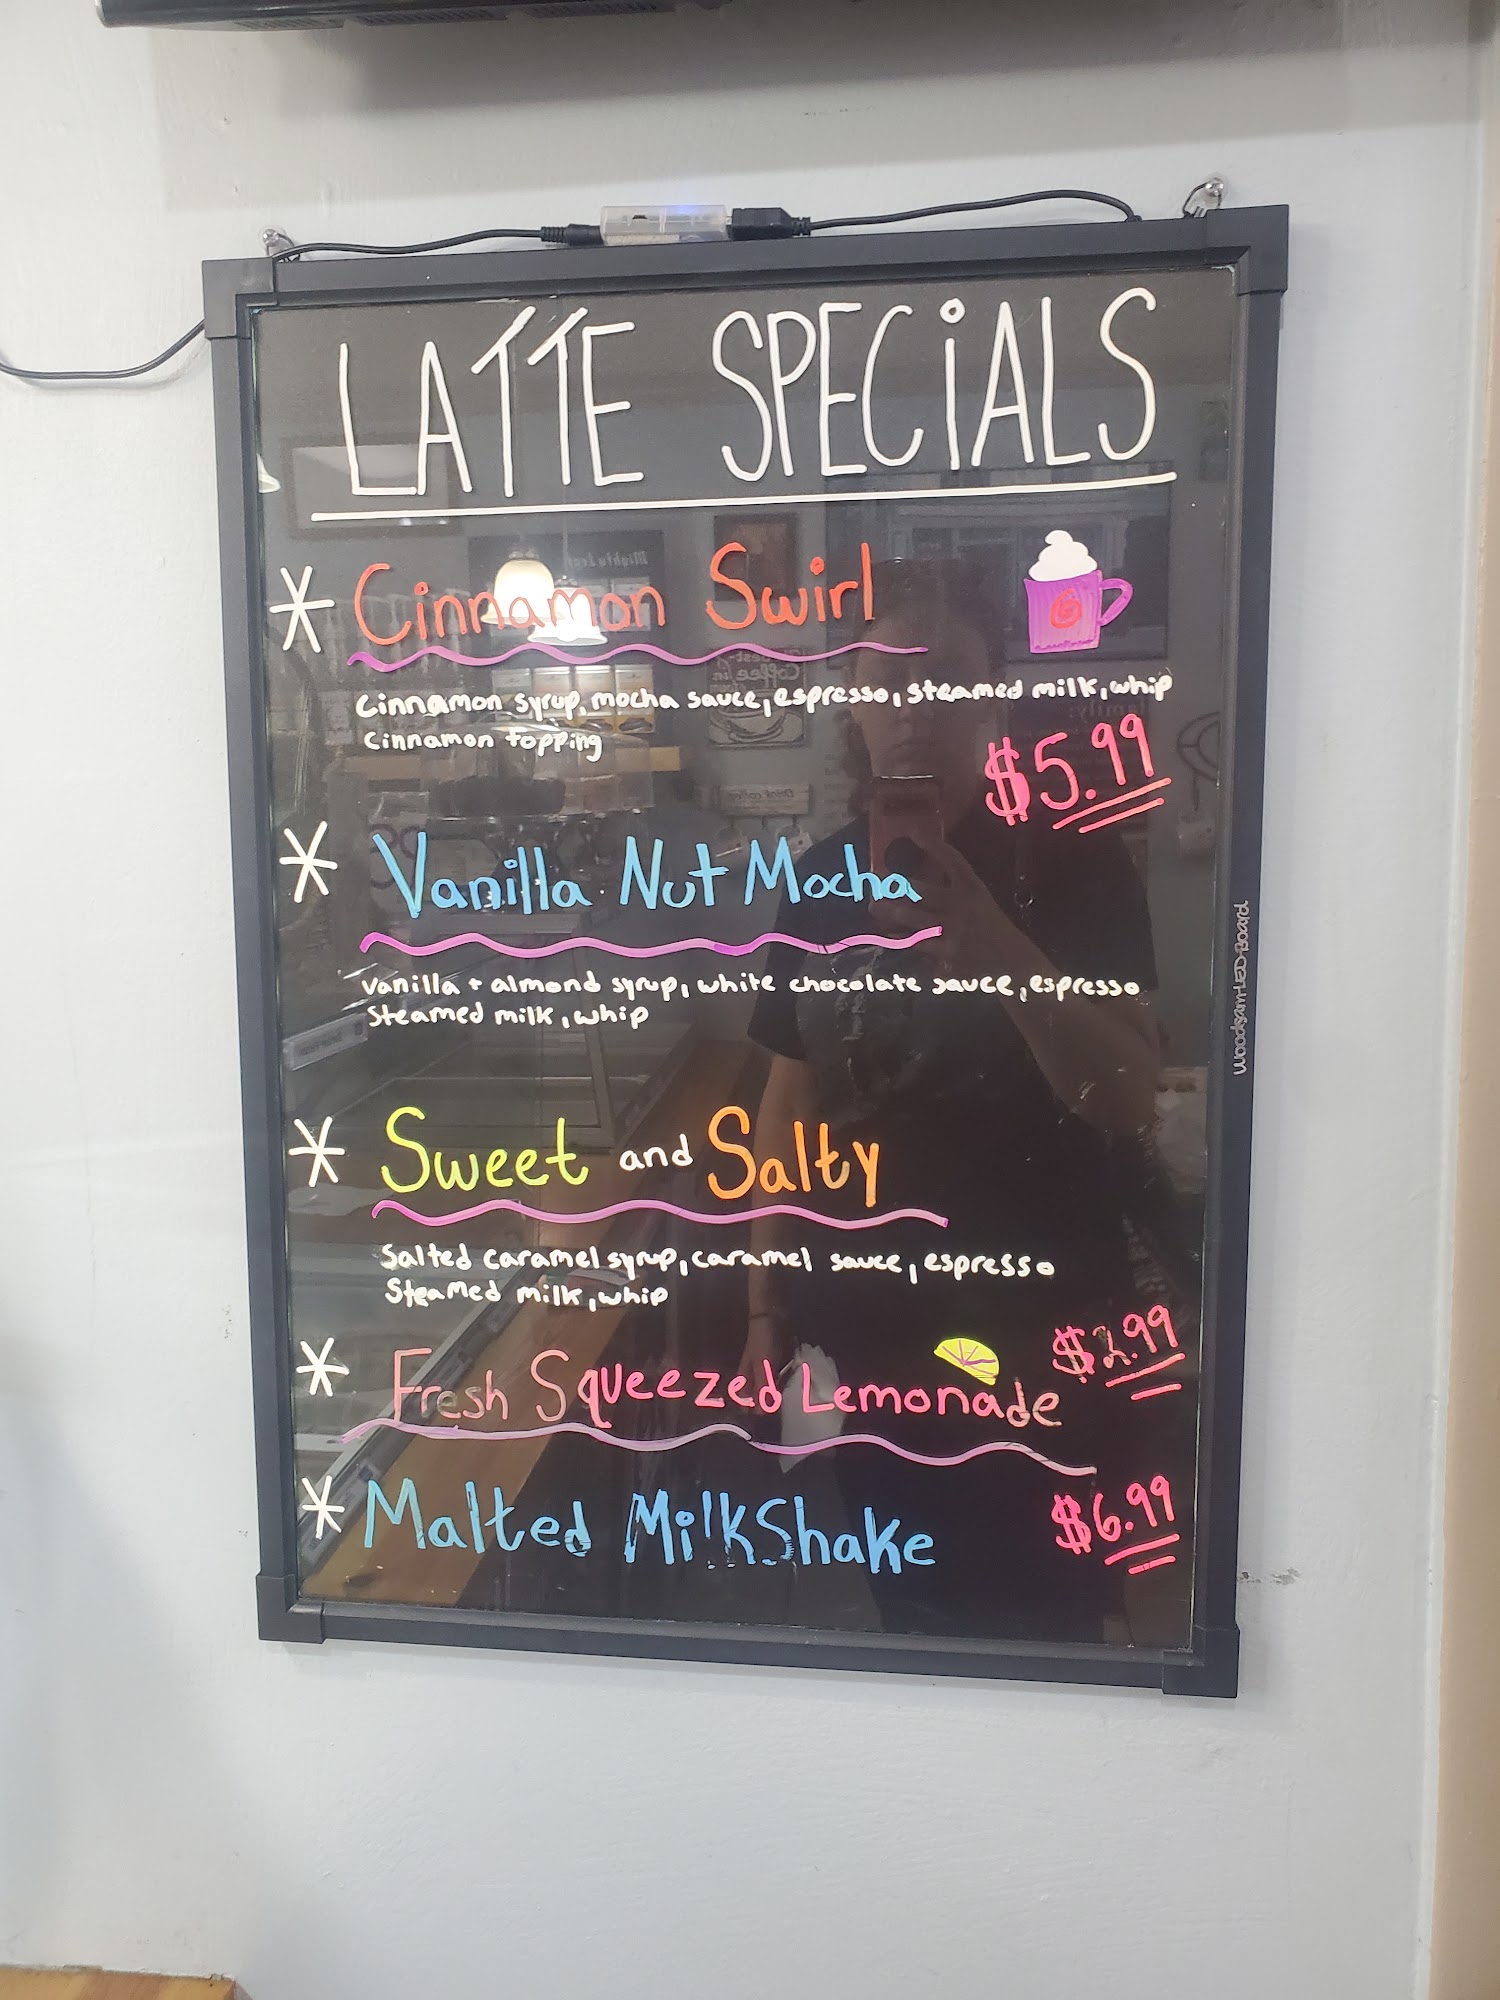 LATTE SPECiALS
* Cinnamon Swirl
cinnamon syrup, mocha sauce, espresso, steamed milk, whip
cinnamon topping
$5.99
* Vanilla Nut Mocha
vanilla + almond syrup, white chocolate sauce, espresso
steamed milk, whip
* Sweet and Salty
Salted caramel syrup, caramel sauce, espresso
Steamed milk, whip
$2.99
* Fresh Squeezed Lemonade
* Malted MilkShake
$6.99
Woodsam-LED-Board